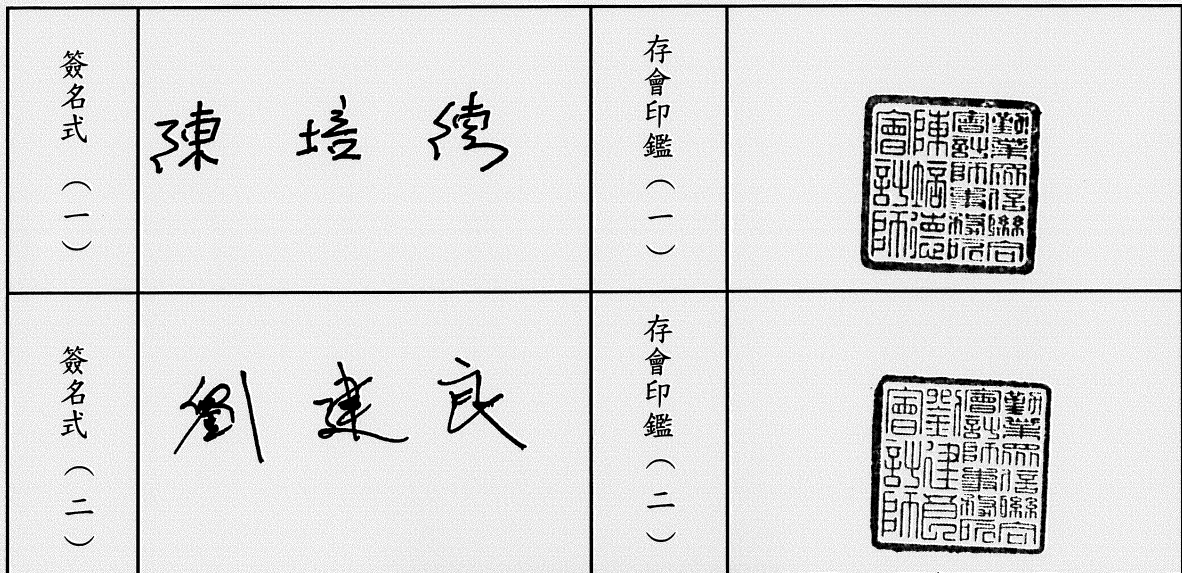 簽名式（一）
陳培德
存會印鑑（一）
勤業眾信聯合
會計師事務所
陳培德
會計師
簽名式（二）
劉建良
存會印鑑（二）
勤業眾信聯合
會計師事務所
劉建良
會計師